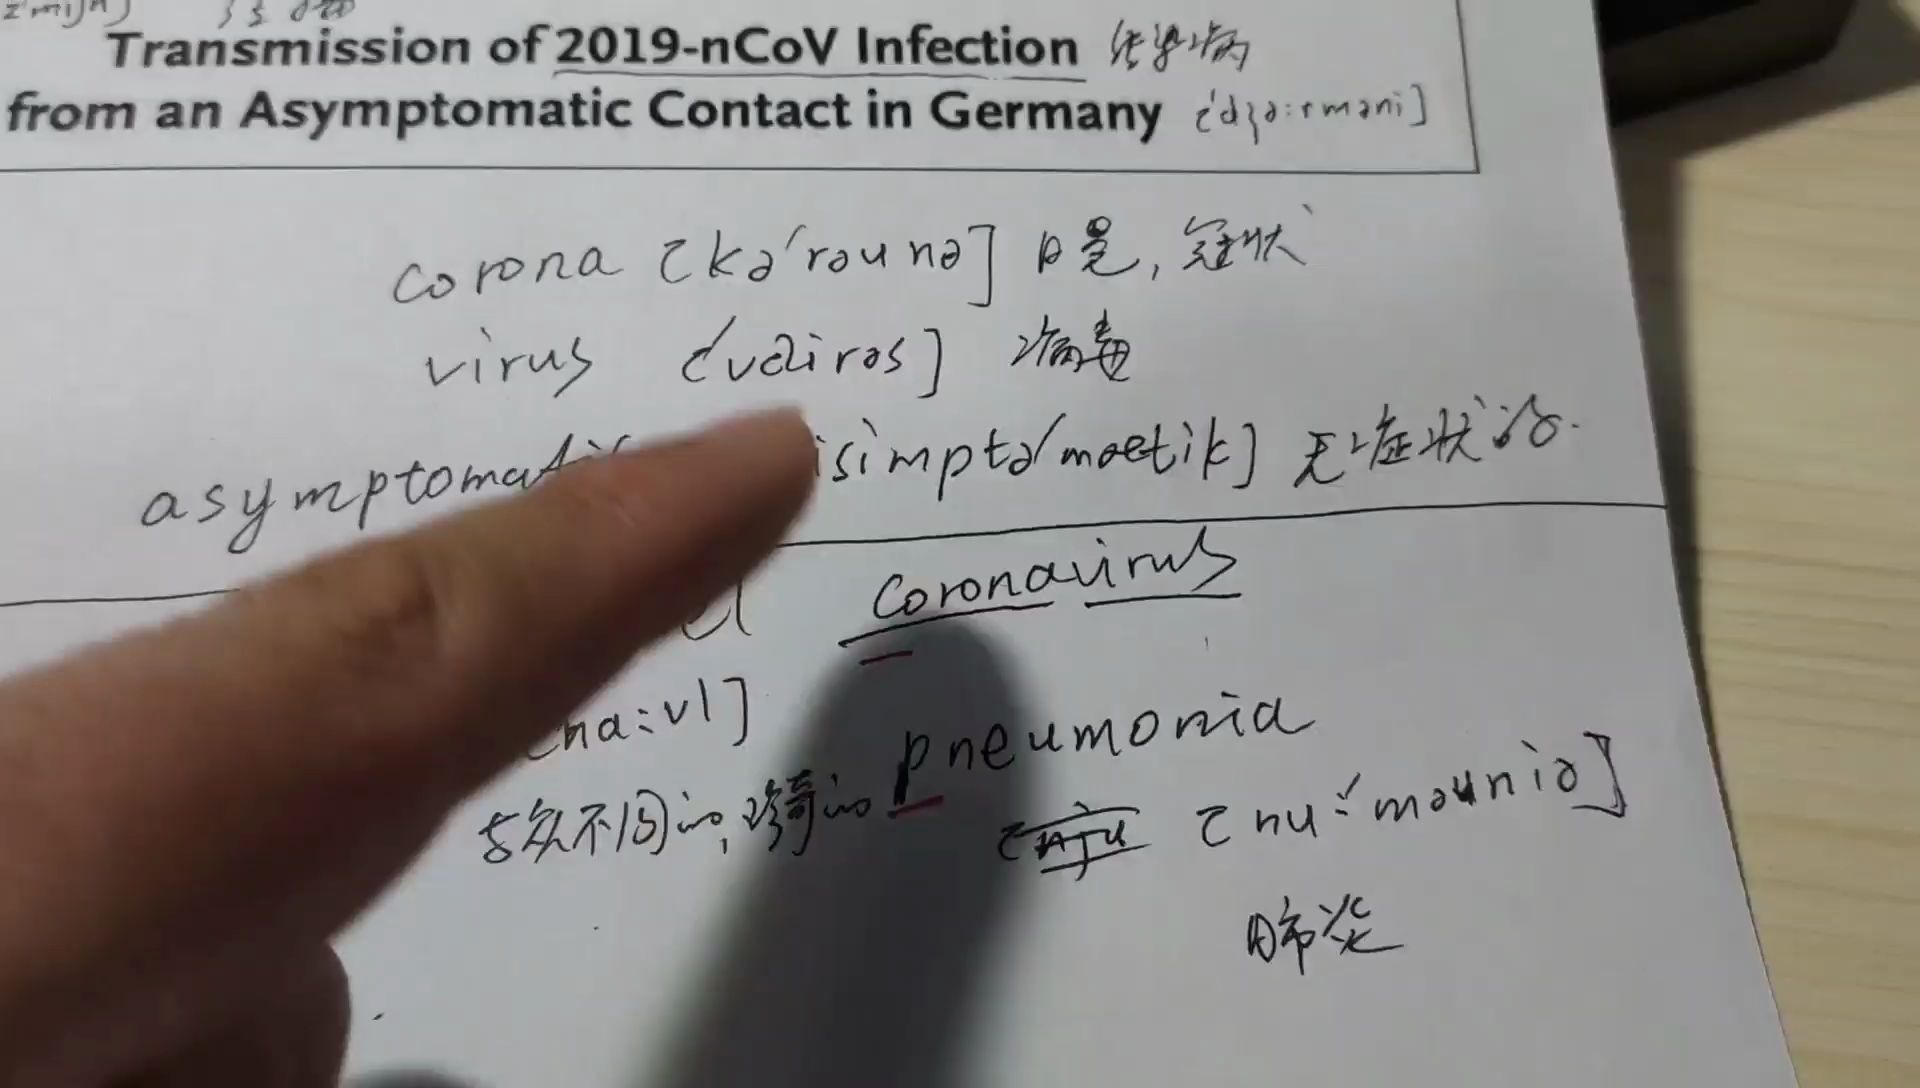 Transmission of 2019-nCoV Infection 传染病
from an Asymptomatic Contact in Germany ['dʒə:rməni]
corona [kə'rəunə] 日晕, 冠状
virus ['vairəs] 病毒
isimptə'mætik] 无症状的.
coronavirus
na:vl]
pneumonia
与众不同的, 珍奇的
[nju [nu:'məuniə]
肺炎